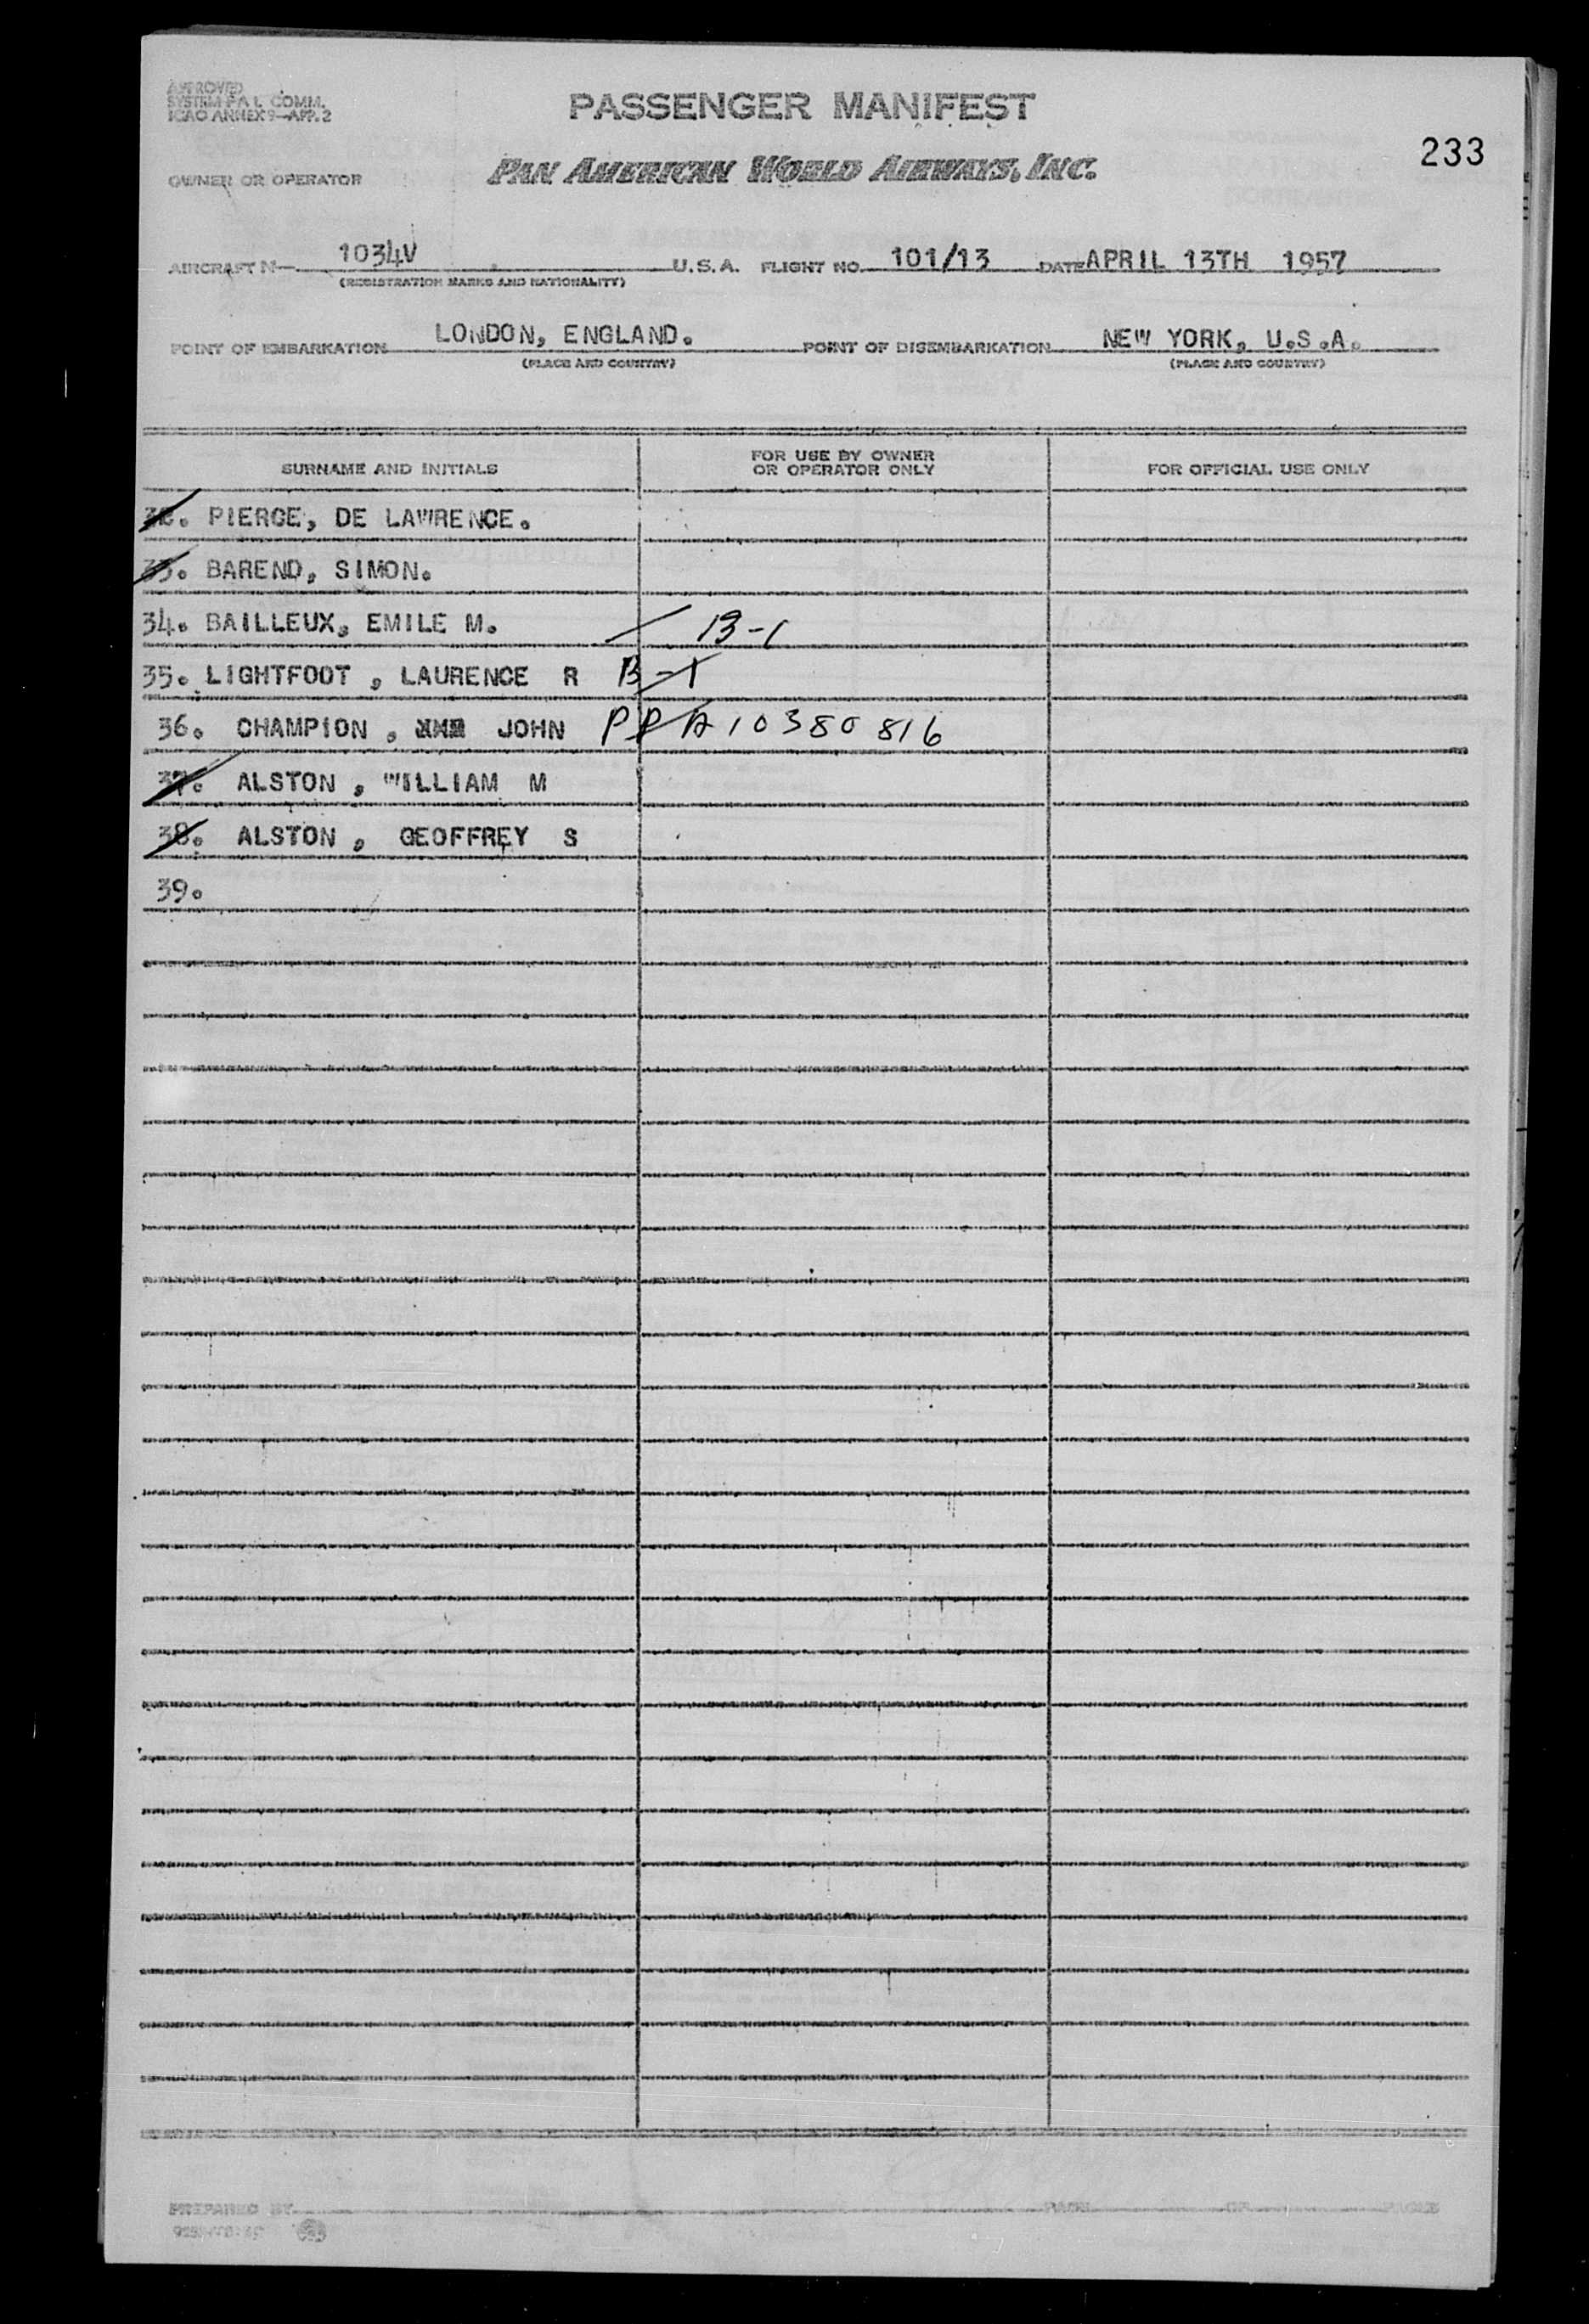 APPROVED
SYSTEM F A L COMM.
ICAO ANNEX 9—APP. 2
PASSENGER MANIFEST
233
OWNER OR OPERATOR
PAN AMERICAN WORLD AIRWAYS, INC.
AIRCRAFT N— 1034V U.S.A. FLIGHT NO. 101/13 DATE APRIL 13TH 1957
(REGISTRATION MARKS AND NATIONALITY)
POINT OF EMBARKATION LONDON, ENGLAND. POINT OF DISEMBARKATION NEW YORK, U.S.A.
(PLACE AND COUNTRY) (PLACE AND COUNTRY)
SURNAME AND INITIALS FOR USE BY OWNER OR OPERATOR ONLY FOR OFFICIAL USE ONLY
32. PIERCE, DE LAWRENCE.
33. BAREND, SIMON.
34. BAILLEUX, EMILE M. B-1
35. LIGHTFOOT , LAURENCE R B-1
36. CHAMPION , JOHN PPA10380816
37. ALSTON , WILLIAM M
38. ALSTON , GEOFFREY S
39.
PREPARED BY PAGE OF PAGES